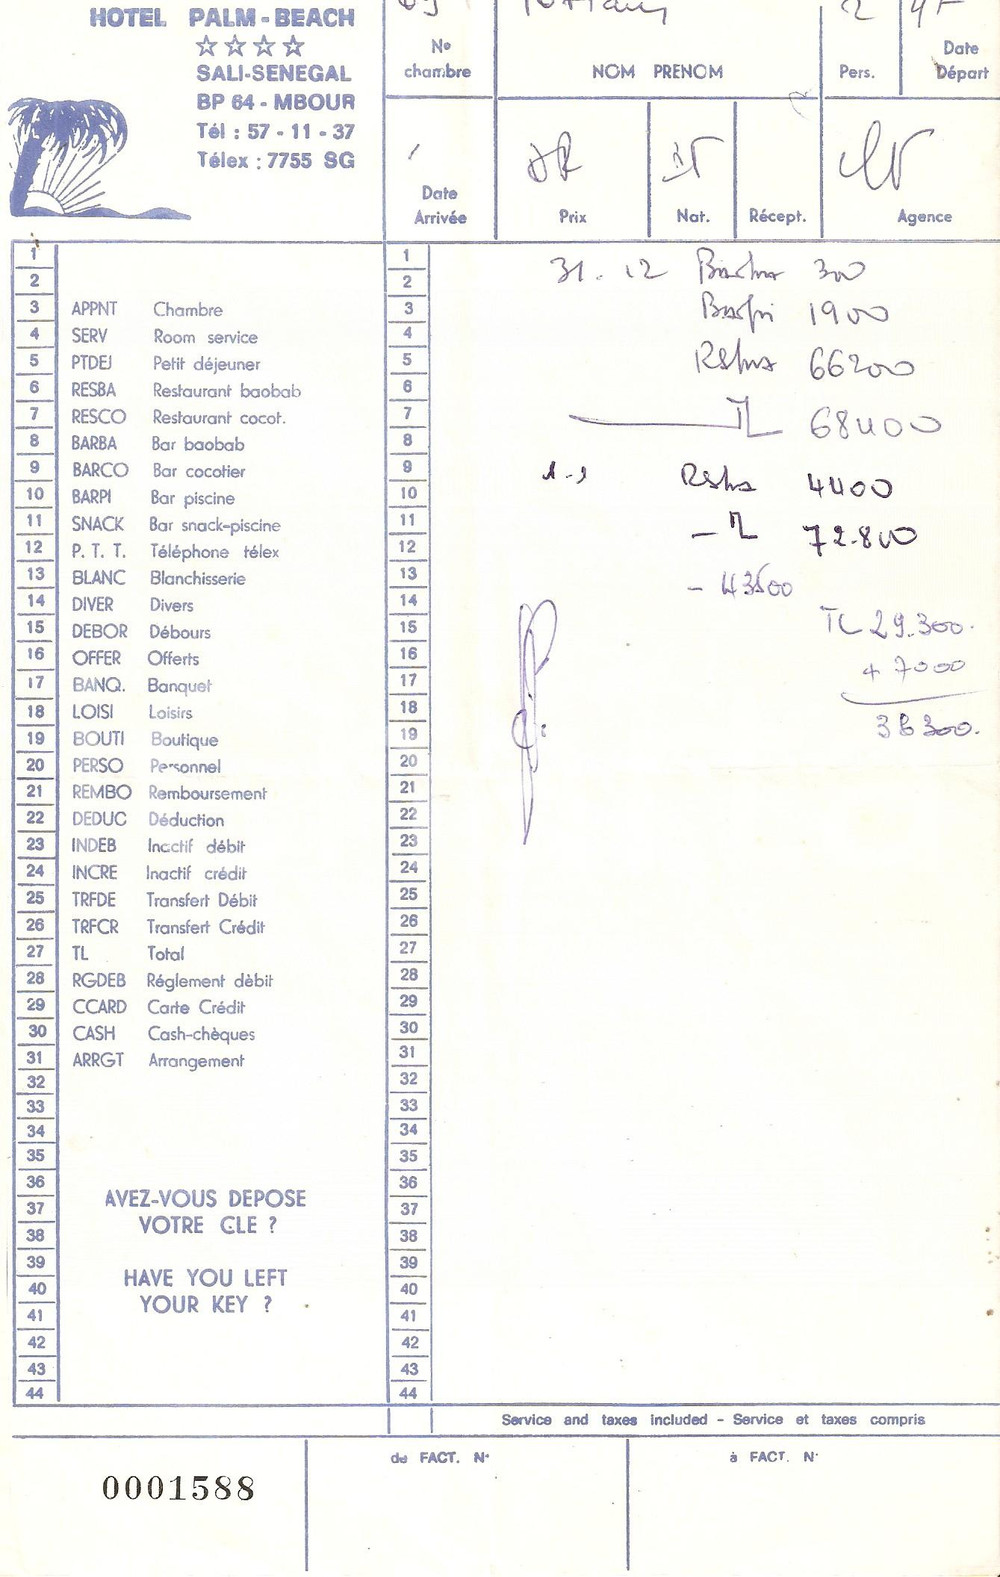 HOTEL PALM-BEACH
SALI-SENEGAL
BP 64 - MBOUR
Tél : 57 - 11 - 37
Télex : 7755 SG
No chambre
NOM PRENOM
2
Pers.
Date Départ
Date Arrivée
Prix
Nat.
Récept.
Agence
1
2
3 APPNT Chambre
4 SERV Room service
5 PTDEJ Petit déjeuner
6 RESBA Restaurant baobab
7 RESCO Restaurant cocot.
8 BARBA Bar baobab
9 BARCO Bar cocotier
10 BARPI Bar piscine
11 SNACK Bar snack-piscine
12 P. T. T. Téléphone télex
13 BLANC Blanchisserie
14 DIVER Divers
15 DEBOR Débours
16 OFFER Offerts
17 BANQ. Banquet
18 LOISI Loisirs
19 BOUTI Boutique
20 PERSO Personnel
21 REMBO Remboursement
22 DEDUC Déduction
23 INDEB Inactif débit
24 INCRE Inactif crédit
25 TRFDE Transfert Débit
26 TRFCR Transfert Crédit
27 TL Total
28 RGDEB Réglement dèbit
29 CCARD Carte Crédit
30 CASH Cash-chèques
31 ARRGT Arrangement
32
33
34
35
36
37
38
39
40
41
42
43
44
AVEZ-VOUS DEPOSE
VOTRE CLE ?
HAVE YOU LEFT
YOUR KEY ?
1
2
3
4
5
6
7
8
9
10
11
12
13
14
15
16
17
18
19
20
21
22
23
24
25
26
27
28
29
30
31
32
33
34
35
36
37
38
39
40
41
42
43
44
31.12 300
1900
66200
TL 68400
4400
- TL 72.800
- 43500
TL 29.300.
+ 7000
36300.
Service and taxes included - Service et taxes compris
0001588
de FACT. N°
à FACT. N°